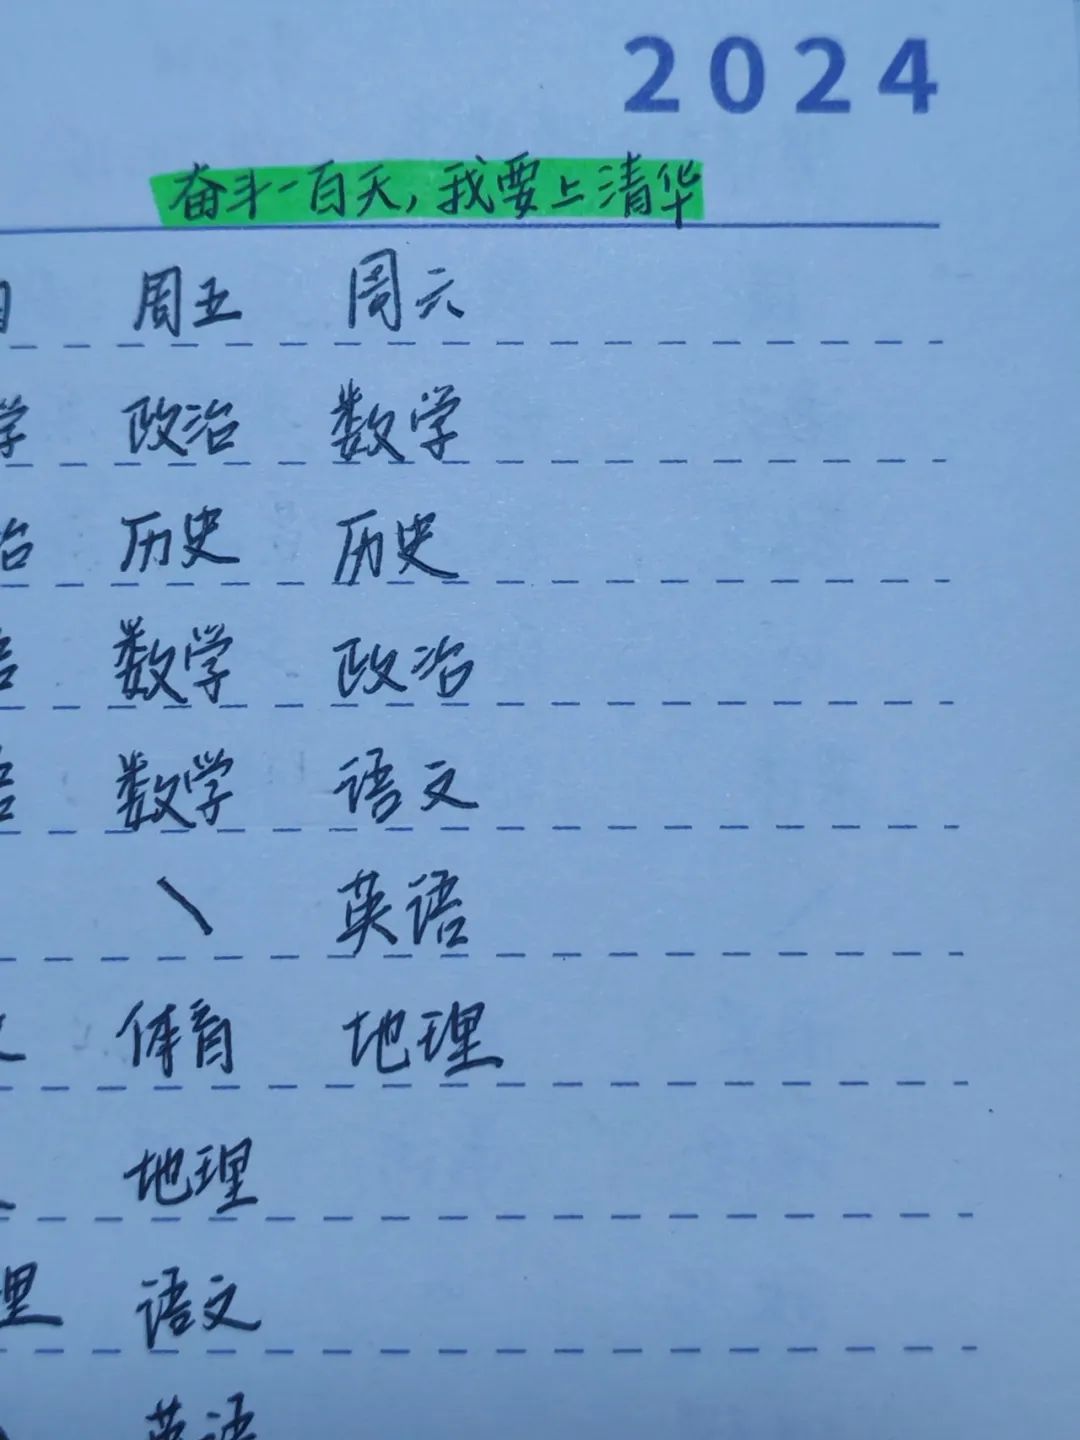 2024
奋斗一百天,我要上清华
周五 周六
学 政治 数学
治 历史 历史
数学 政治
数学 语文
\ 英语
体育 地理
地理
理 语文
英语